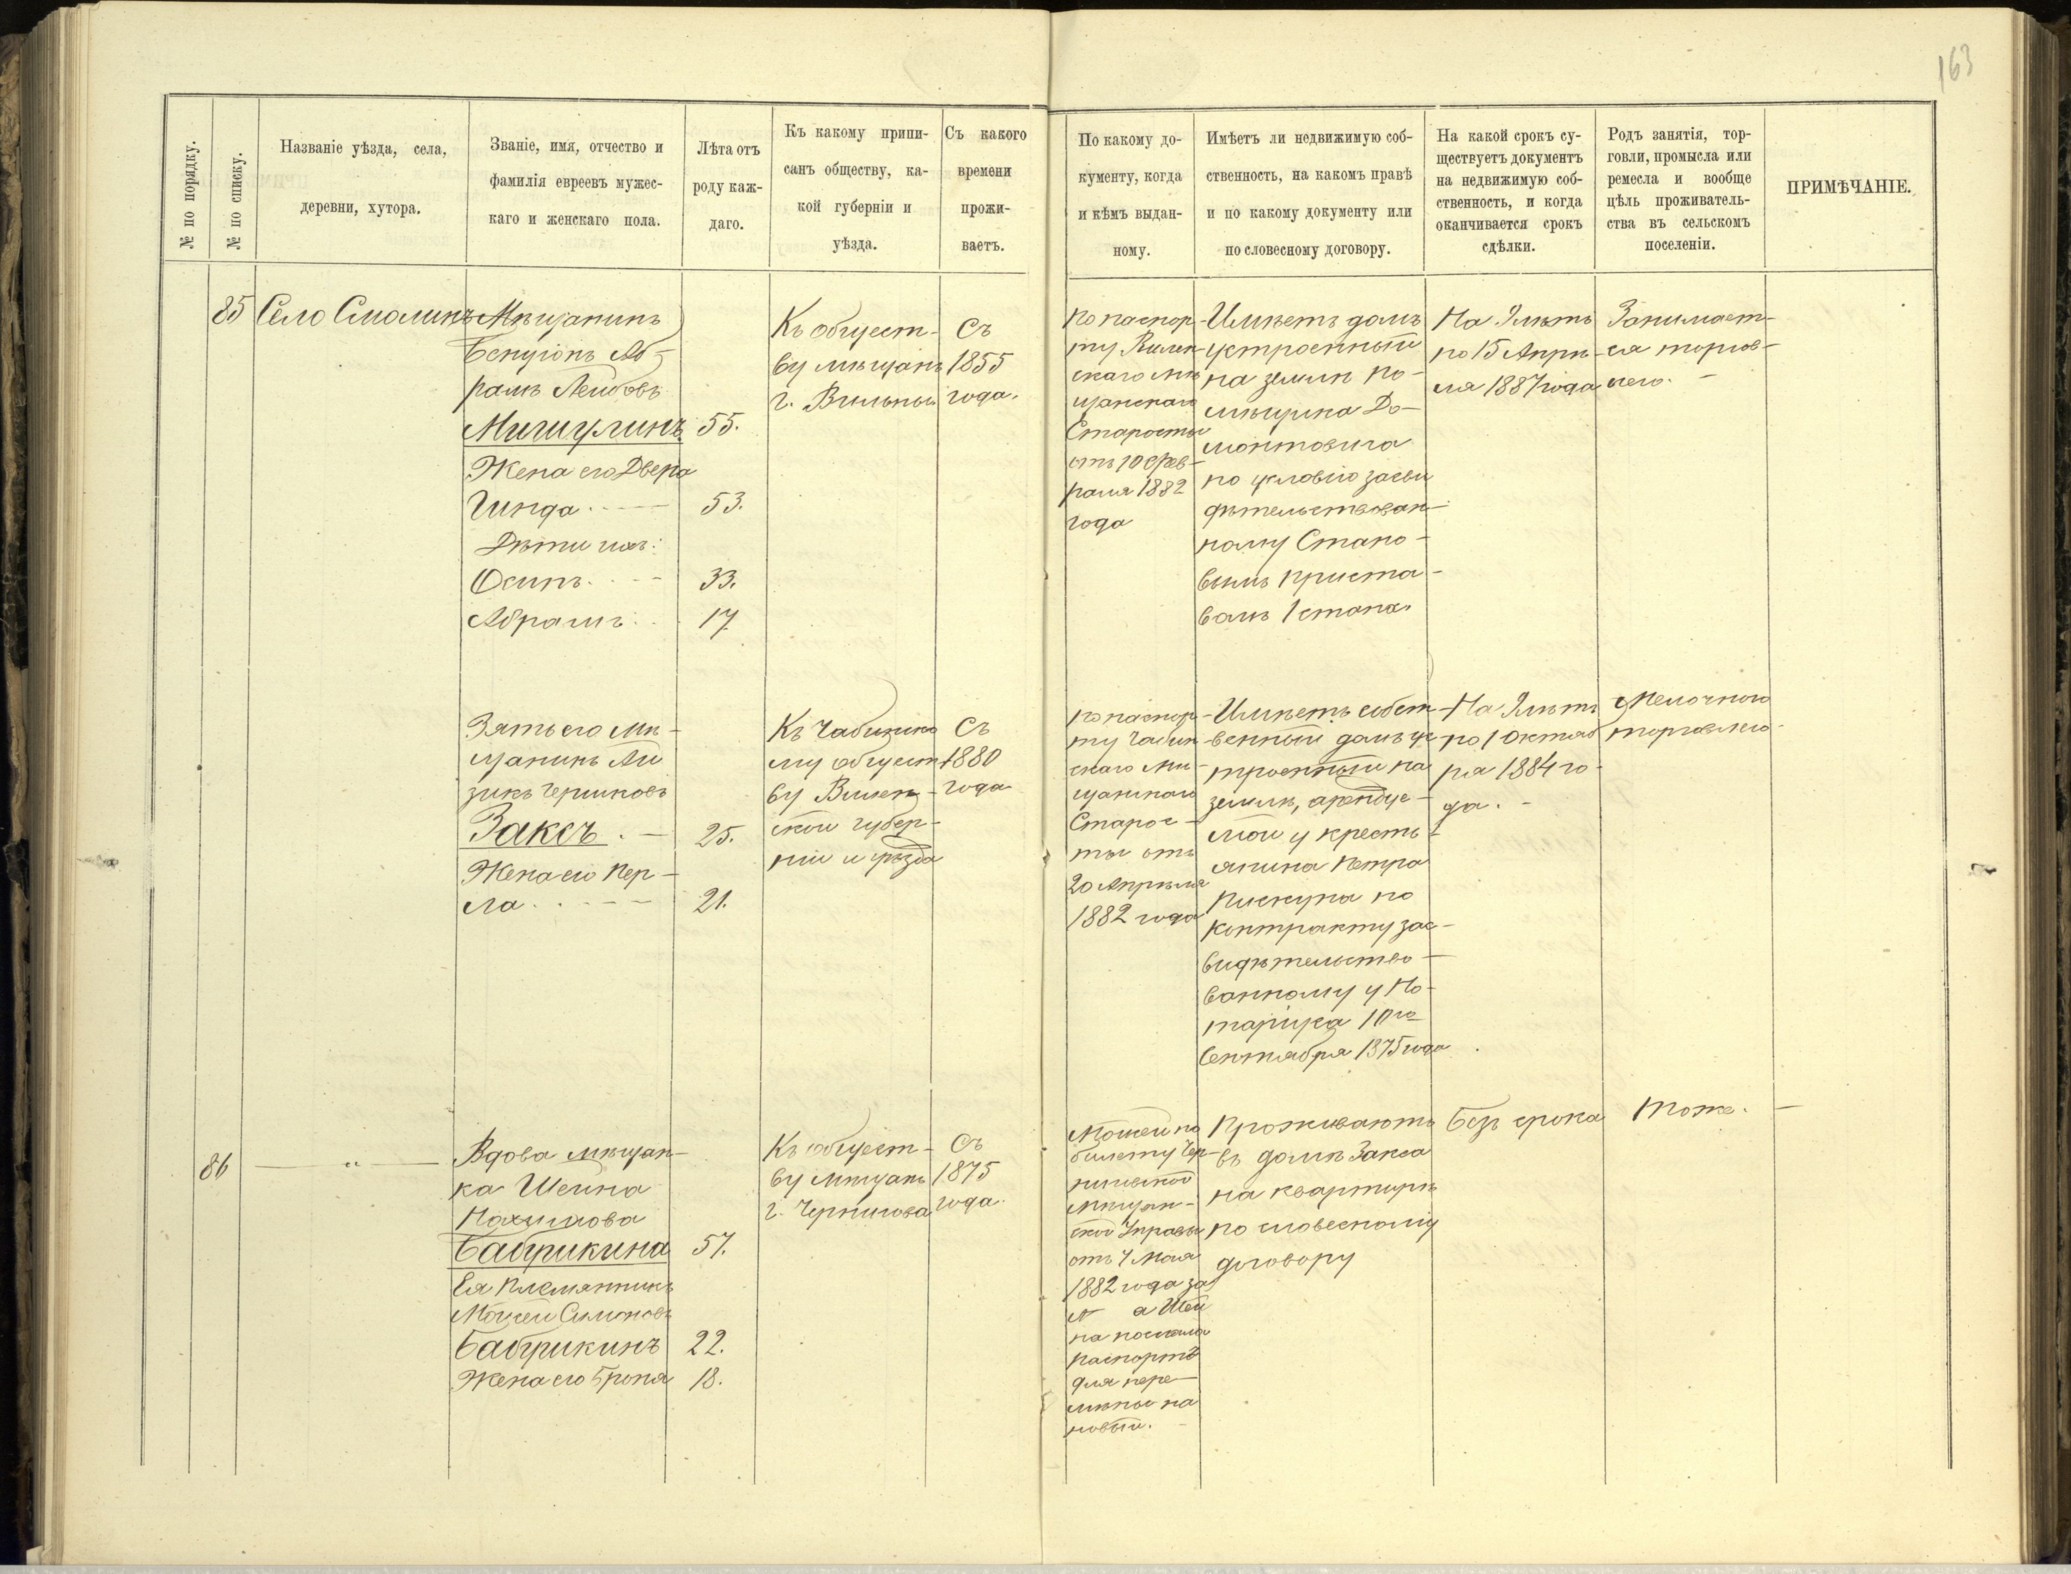 163
№ по порядку.
№ по списку.
Названіе уѣзда, села,
деревни, хутора.
Званіе, имя, отчество и
фамилія евреевъ мужес-
каго и женскаго пола.
Лѣта отъ
роду каж-
даго.
Къ какому припи-
санъ обществу, ка-
кой губерніи и
уѣзда.
Съ какого
времени
прожи-
ваетъ.
По какому до-
кументу, когда
и кѣмъ выдан-
ному.
Имѣетъ ли недвижимую соб-
ственность, на какомъ правѣ
и по какому документу или
по словесному договору.
На какой срокъ су-
ществуетъ документъ
на недвижимую соб-
ственность, и когда
оканчивается срокъ
сдѣлки.
Родъ занятія, тор-
говли, промысла или
ремесла и вообще
цѣль проживатель-
ства въ сельскомъ
поселеніи.
ПРИМѢЧАНІЕ.
85
Село Смолинъ
Мѣщанинъ
Бенціонъ Аб-
рамъ Лейбовъ
Мишулинъ 55.
Жена его Двера
Гинда 53.
Дѣти ихъ:
Осипъ 33.
Абрамъ 17
Къ общест-
ву мѣщанъ
г. Вильны
Съ
1855
года.
По паспор-
ту Вилен-
скаго мѣ
щанскаго
Старосты
отъ 10 Фев-
раля 1882
года
Имѣетъ домъ
устроенный
на землѣ по-
мѣщика До-
монтовича
по условію засви
дѣтельствован-
ному Стано-
вымъ приста-
вомъ 1 стана.
На лѣтъ
по 15 Апрѣ-
ля 1887 года
Занимает-
ся торгов-
лею.
Зять его мѣ-
щанинъ Ай
зикъ
Заксъ 25.
Жена его Пер-
ла 21.
Къ
му общест-
ву Вилен-
ской губер-
ніи и уѣзда
Съ
1880
года
По паспор-
ту
скаго мѣ-
щанскаго
Старос-
ты отъ
20 Апрѣля
1882 года
Имѣетъ собст-
венный домъ ус-
троенный на
землѣ, арендуе-
мой у кресть-
янина Петра
Пискуна по
контракту зас-
видѣтельство-
ванному у Но-
таріуса 10го
Сентября 1875 года
На лѣтъ
по 1 Октяб
ря 1884 го-
да.
Мелочного
торговлею
86
"
Вдова мѣщан-
ка Шейна
Нохимова
Бабушкина 57.
Ея племянникъ
Мошей Симоновъ
Бабушкинъ 22.
Жена его Броня 18.
Къ общест-
ву мѣщанъ
г. Чернигова
Съ
1875
года.
Мошей по
билету Чер-
ниговской
Мѣщан-
ской Управы
отъ 7 Мая
1882 года за
№ а Шей
на послала
паспортъ
для пере-
мѣны на
новый.
Проживаютъ
въ домѣ Закса
на квартирѣ
по словесному
договору
Безъ срока
Тоже.